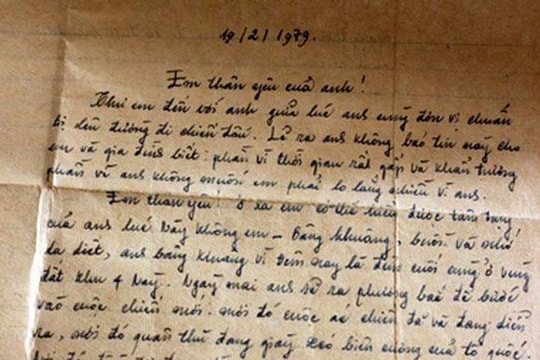 19/2/1979.
Em thân yêu của anh!
Thư em đến với anh giữa lúc anh cùng đơn vị chuẩn
bị lên đường đi chiến đấu. Lẽ ra anh không báo tin này cho
em và gia đình biết: phần vì thời gian rất gấp và khẩn trương
phần vì anh không muốn em phải lo lắng nhiều vì anh.
Em thân yêu! Ở xa em có thể hiểu được tâm trạng
của anh lúc này không em - Bâng khuâng, buồn và nhớ
da diết, anh bâng khuâng vì đêm nay là đêm cuối cùng ở vùng
đất khu 4 này. Ngày mai anh sẽ ra phương bắc để bước
vào cuộc chiến mới. nơi đó cuộc chiến đã và đang diễn
ra, nơi đó quân thù đang giày xéo biên cương của tổ quốc.